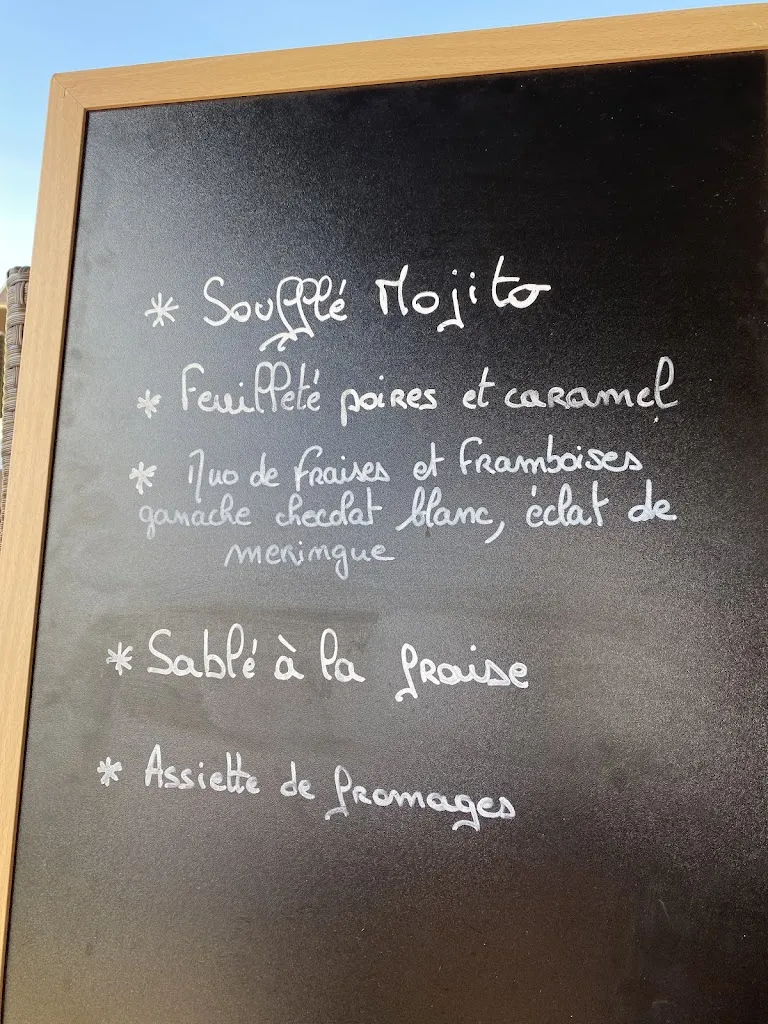 * Soufflé Mojito
* Feuilleté poires et caramel
* Duo de fraises et framboises
ganache checolat blanc, éclat de
meringue
* Sablé à la fraise
* Assiette de fromages